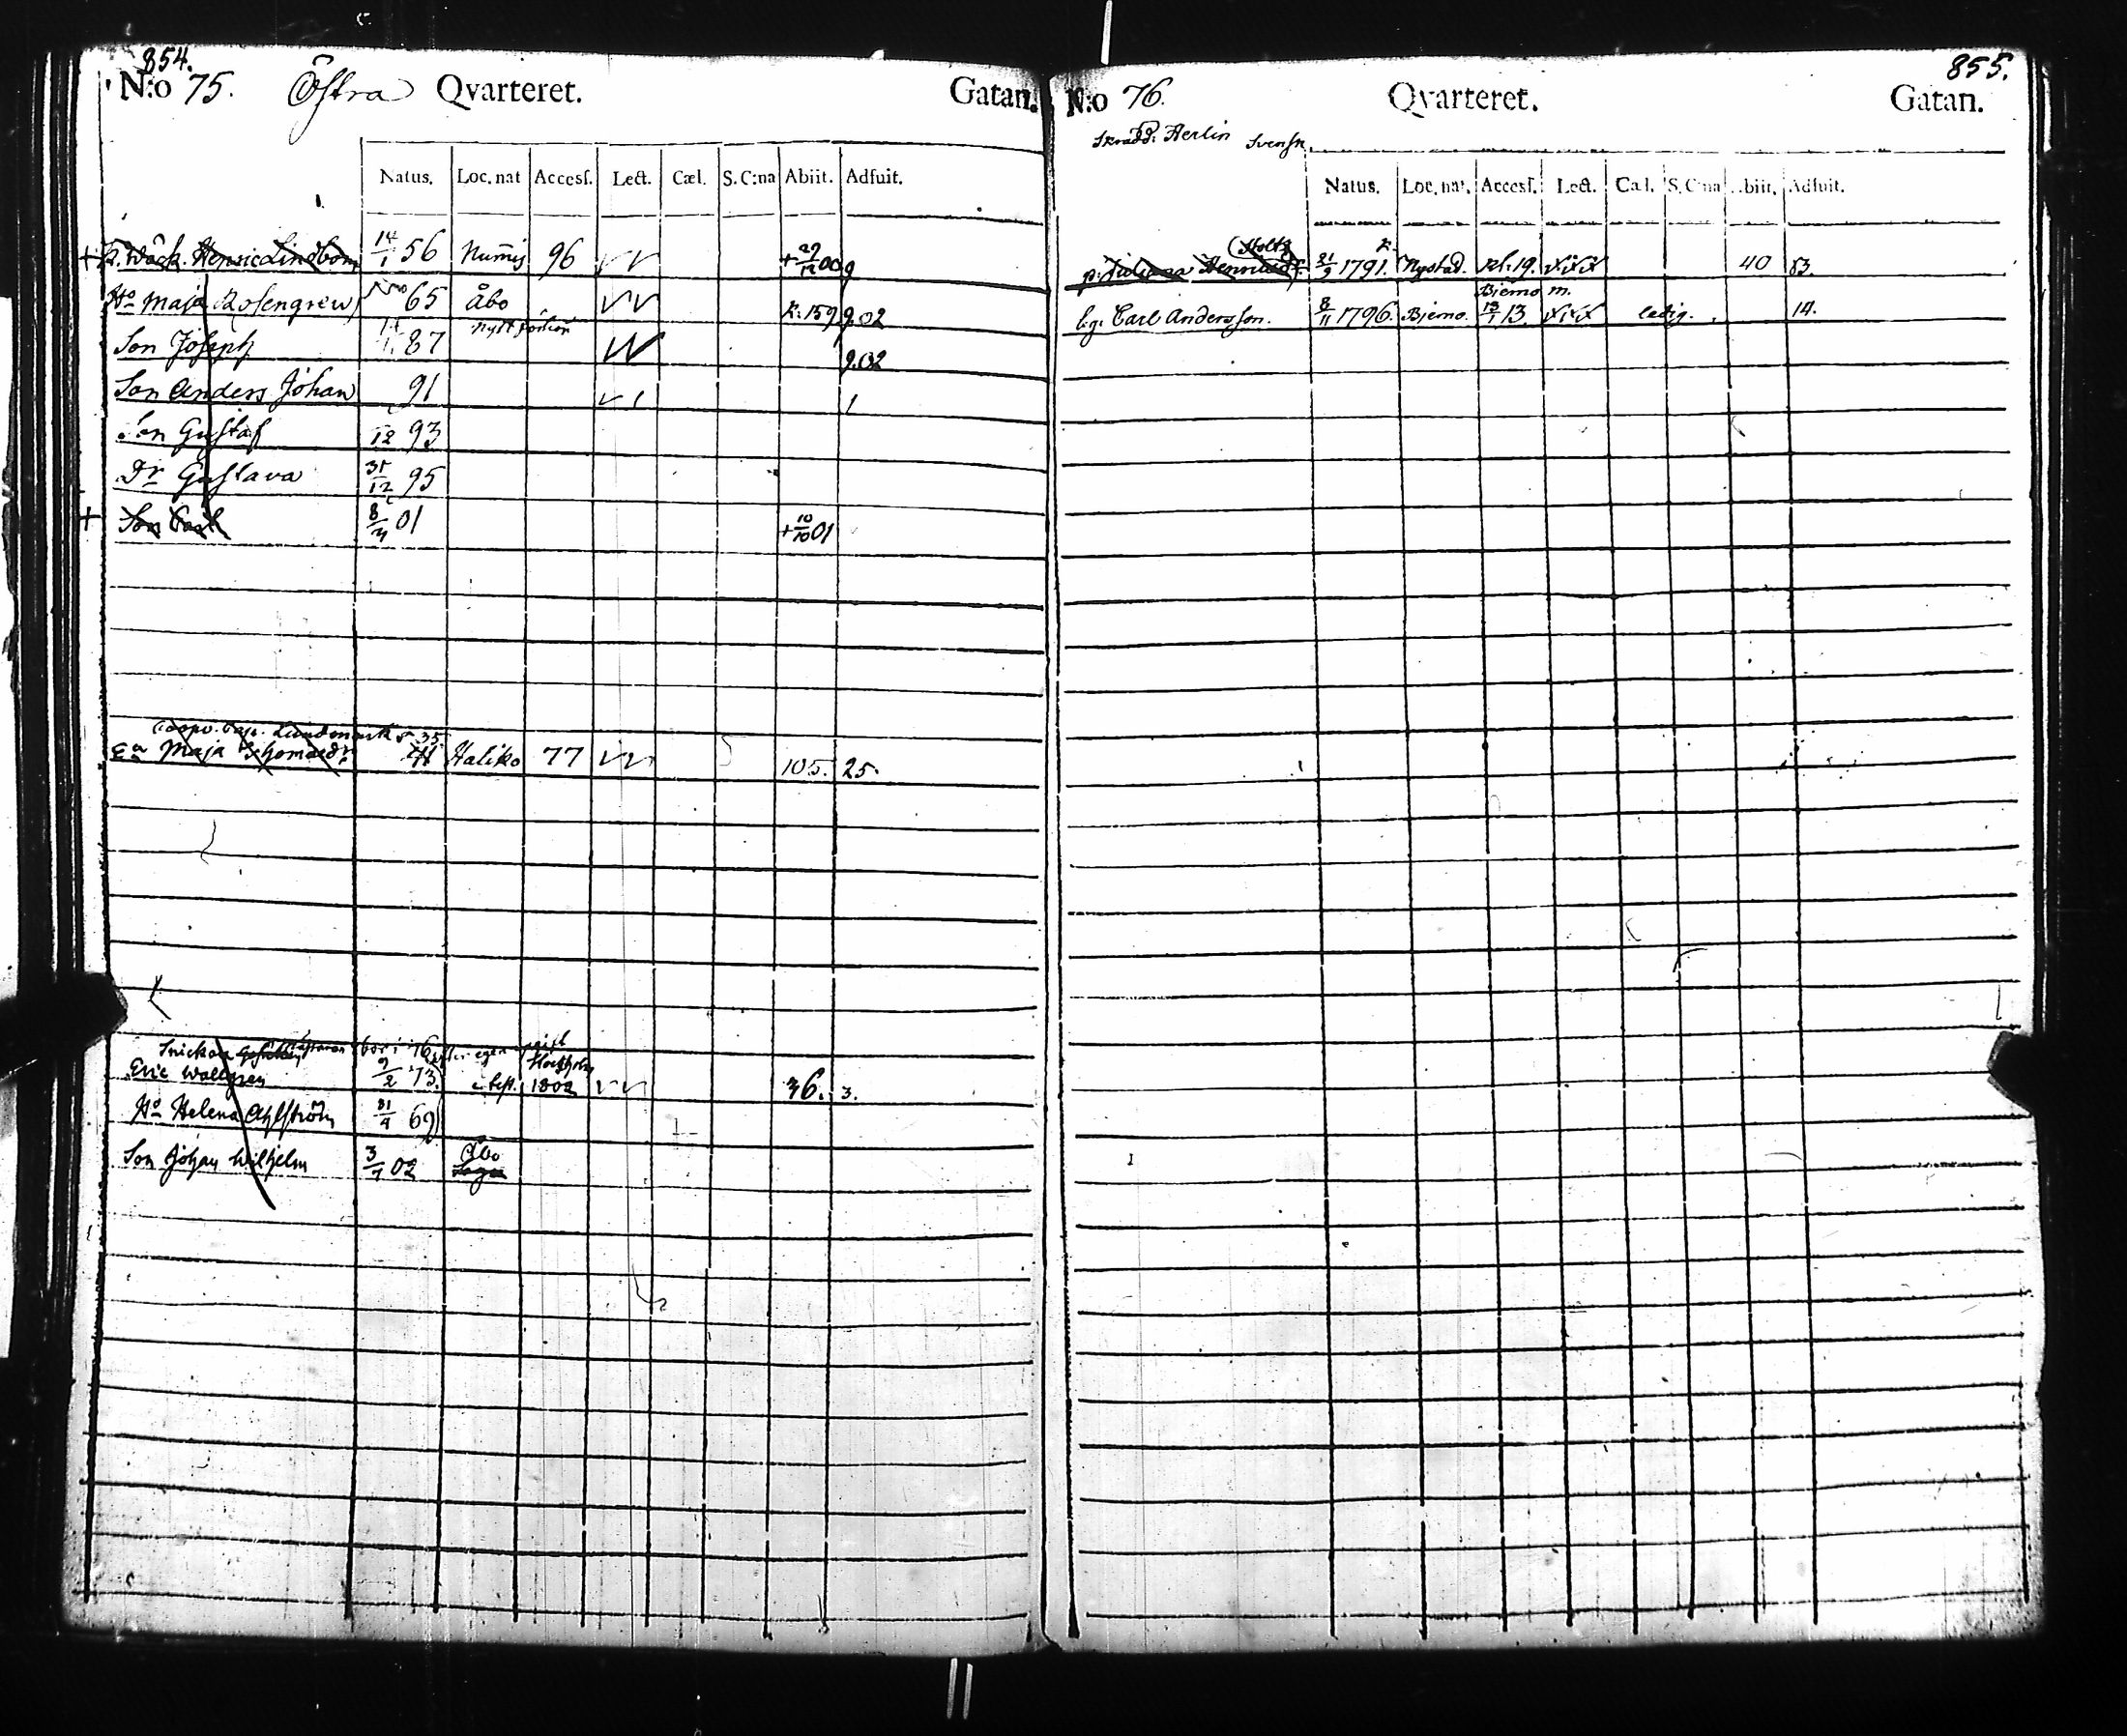 854.
N:o 75. Östra Qvarteret. Gatan.
Natus. Loc. nat Accesſ. Lect. Cæl. S. C:na Abiit. Adfuit.
+ Henric Lindbom 14/1 56 Numis 96 + 29/12 00 9
Ho Maja Rosengren 65 Åbo K: 159 9.02
Son Joseph 87 9.02
Son Anders Johan 91 1
Son Gustaf /12 93
Dr Gustava 31/12 95
+ Son Carl 8/4 01 + 10/10 01
Lundmark 35
Ea Maja Thomasdr Haliko 77 105. 25.
Snickar bor i 76 efter egen
Eric Wallgren 9/2 73 Sept. 1802 36. 3.
Ho Helena Ahlström 31/4 69
Son Johan Wilhelm 3/7 02 Åbo
855.
N:o 76. Qvarteret. Gatan.
Skrädd: Herlin Svensk
Natus. Loc. nat. Accesſ. Lect. Cæl. S. C:na Abiit. Adfuit.
(Stoltz
p. Juliana Henricsdr 21/9 1791. Nystad. kl. 19. xixix 40 53.
Bjerno m.
lg. Carl Andersson. 8/11 1796. Bjerno. 13/1 13. xixix ledig. 14.